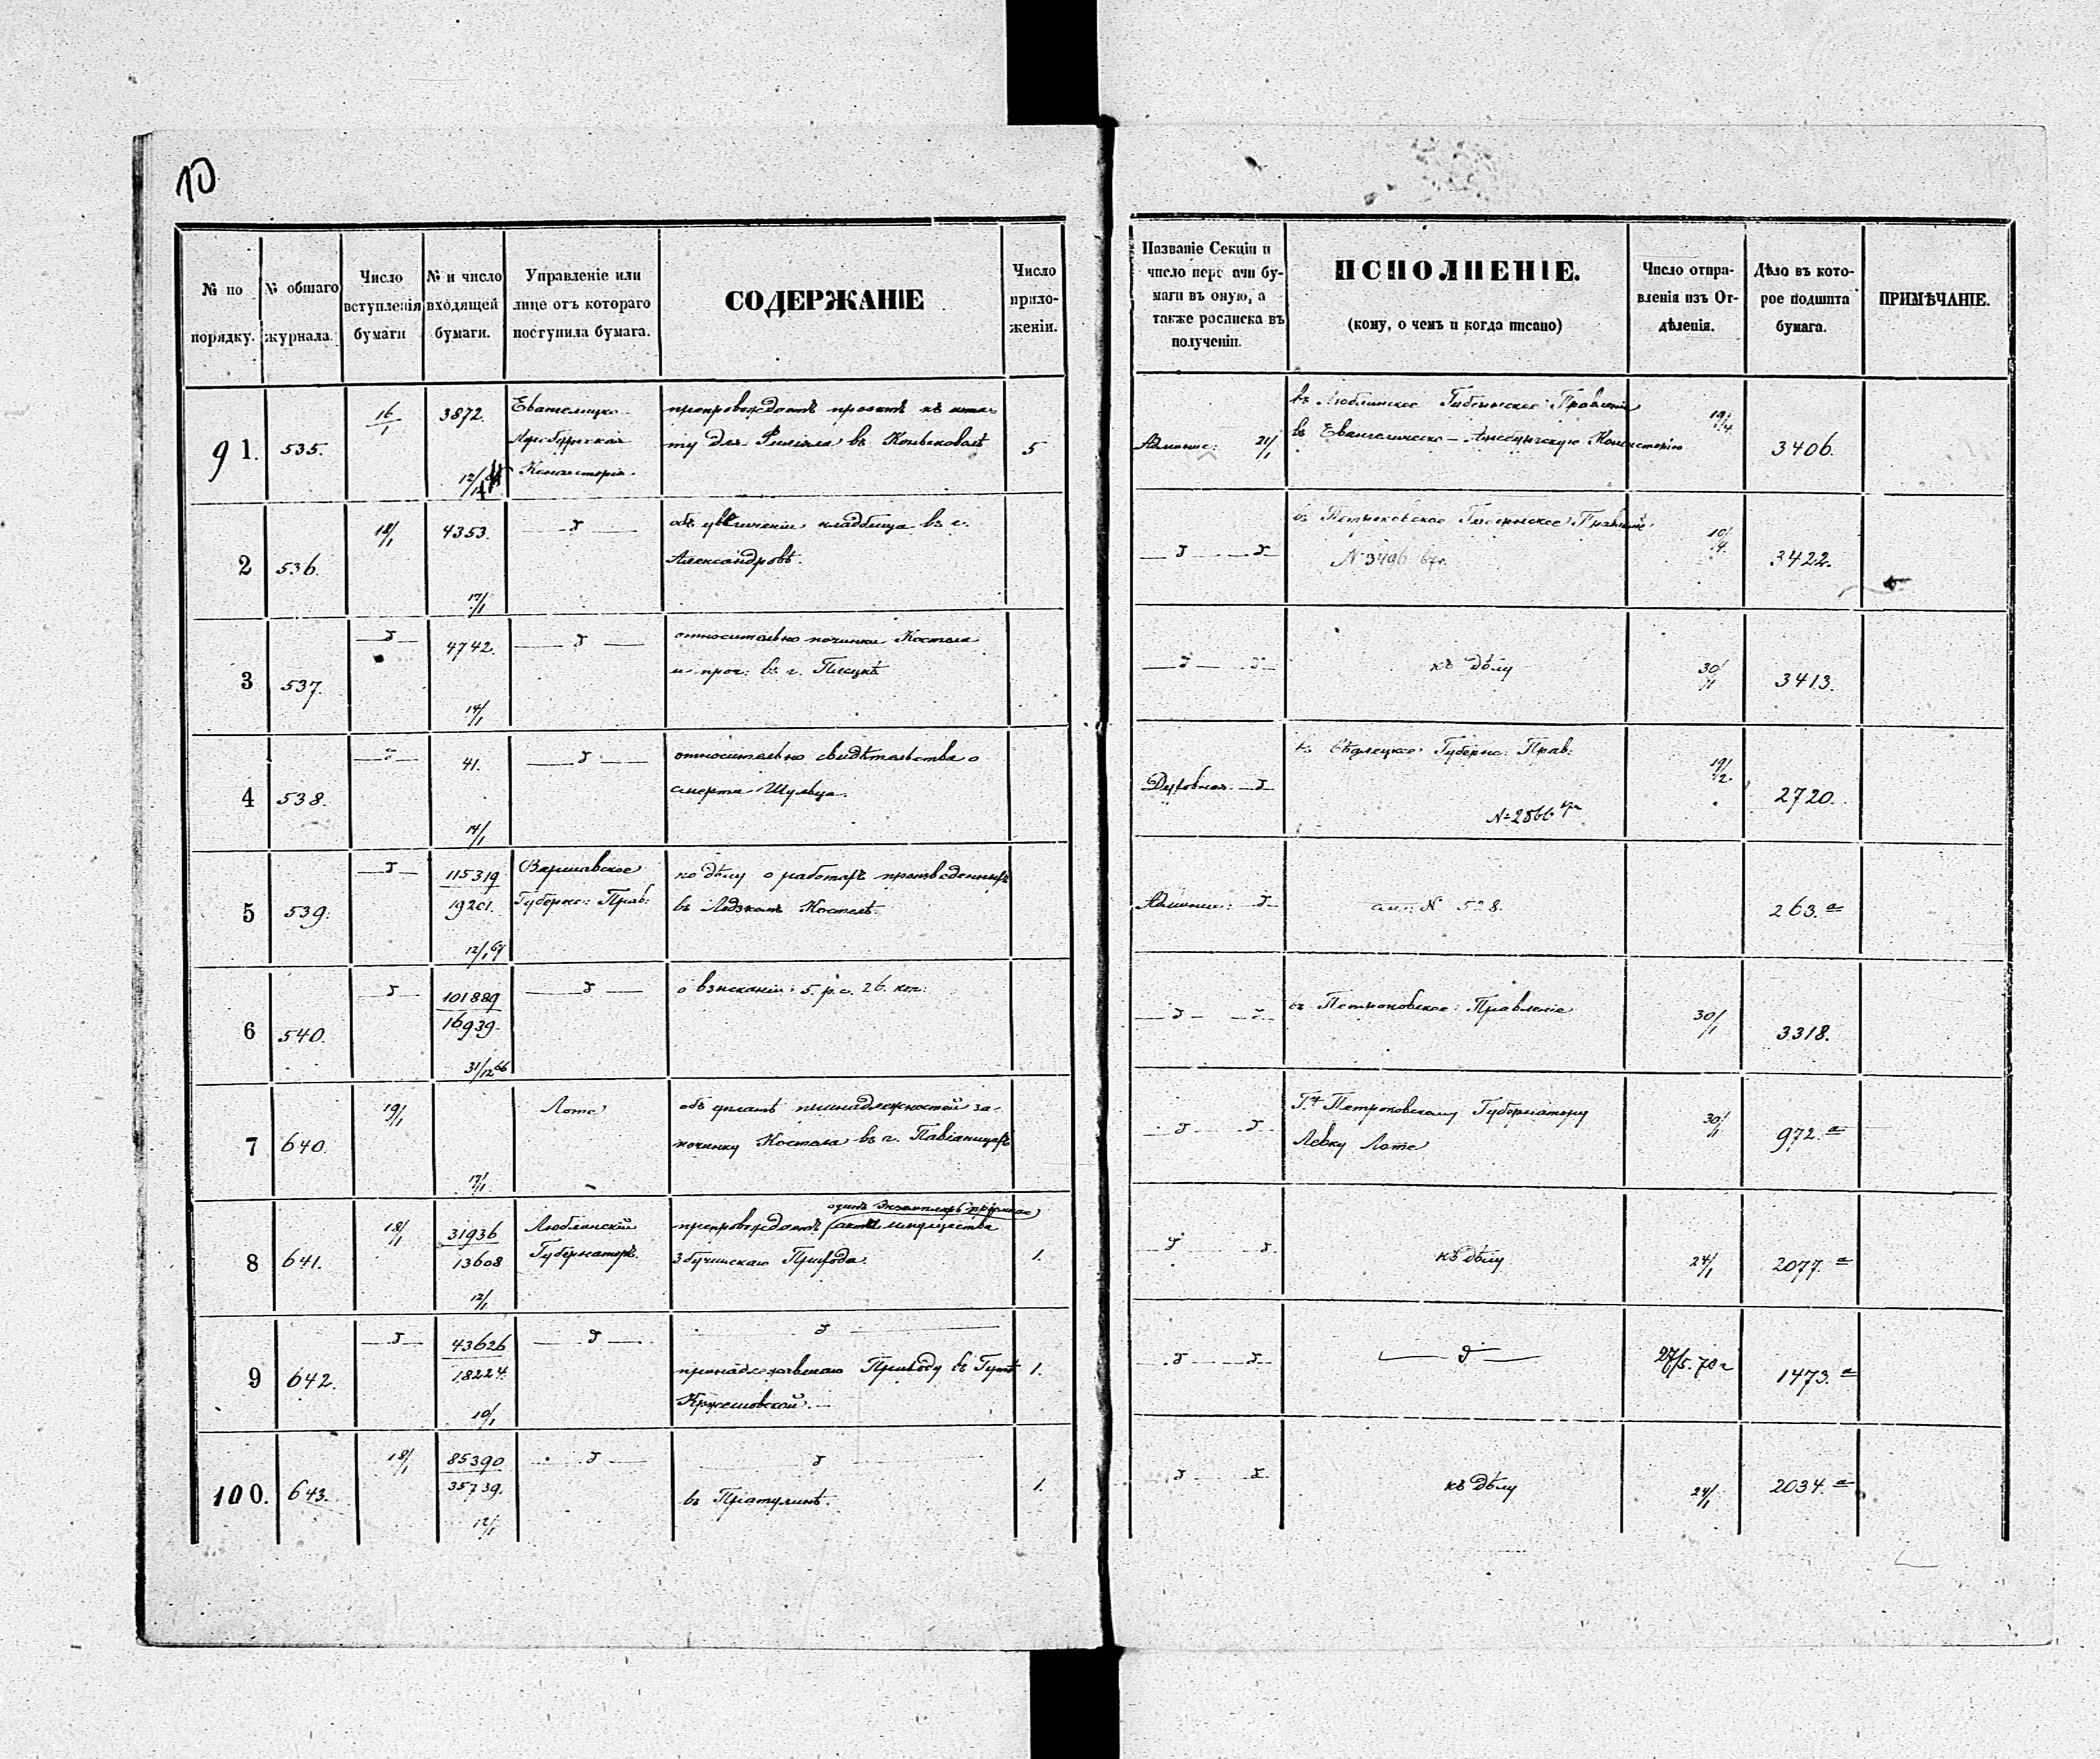 10
№ по порядку.
№ общаго журнала.
Число вступленія бумаги
№ и число входящей бумаги.
Управленіе или лице отъ котораго поступила бумага.
СОДЕРЖАНІЕ
Число приложеніи.
Названіе Секціи и число передачи бумаги въ оную, а также росписка въ полученіи.
ИСПОЛНЕНІЕ.
(кому, о чемъ и когда писано)
Число отправленія изъ Отдѣленія.
Дѣло въ которое подшита бумага.
ПРИМѢЧАНІЕ.
91. 535. 16/1 3872. 12/12
Евангелицко Аугсбургская Консисторія.
препровождаетъ проектъ къ
ту для Филіала въ Коньсковолѣ
5
Админис: 21/1
въ Люблинское Губернское Правленіе
въ Евангелическо-Аугсбургскую Консисторію
19/4. 3406.
2 536. 18/1 4353. 17/1
объ увеличеніи кладбища въ г.
Александровѣ.
въ Петроковское Губернское Правленіе
№ 3496
10/4. 3422.
3 537. 4742. 14/1
относительно починки Костела
и проч: въ г. Плоцкѣ
къ дѣлу
30/1 3413.
4 538. 41. 14/1
относительно свидѣтельства о
смерти Шульца.
Духовная
въ Сѣдлецкое Губернс: Прав:
№ 2866
19/2. 2720.
5 539. 115319 19201. 12/1 67
Варшавское
Губернс: Прав:
по дѣлу о работахъ произведенныхъ
въ Лодзкомъ Костелѣ.
Админис:
№ 528.
263.а
6 540. 101889 16939. 31/12 66
о взысканіи 5. р.с. 26. коп:
въ Петроковское Правленіе
30/1 3318.
7 640. 19/1 17/1
Лоте
объ уплатѣ принадлежностей за
починку Костела въ г. Пабіаницахъ
Г. Петроковскому Губернатору
Левку Лоте
30/1 972.а
8 641. 18/1 31936 13608 12/1
Люблинскій
Губернаторъ.
одинъ экземпляръ
препровождаетъ имущества
Збучинскаго Прихода.
1.
къ дѣлу
24/1 2077.а
9 642. 43626 18224. 10/1
принадлежавшаго Приходу въ Гутѣ
Кржешовской.
1.
27/5. 70г 1473.а
100. 643. 18/1 85390 35739. 12/1
въ Пратулинѣ.
1.
къ дѣлу
24/1 2034.а